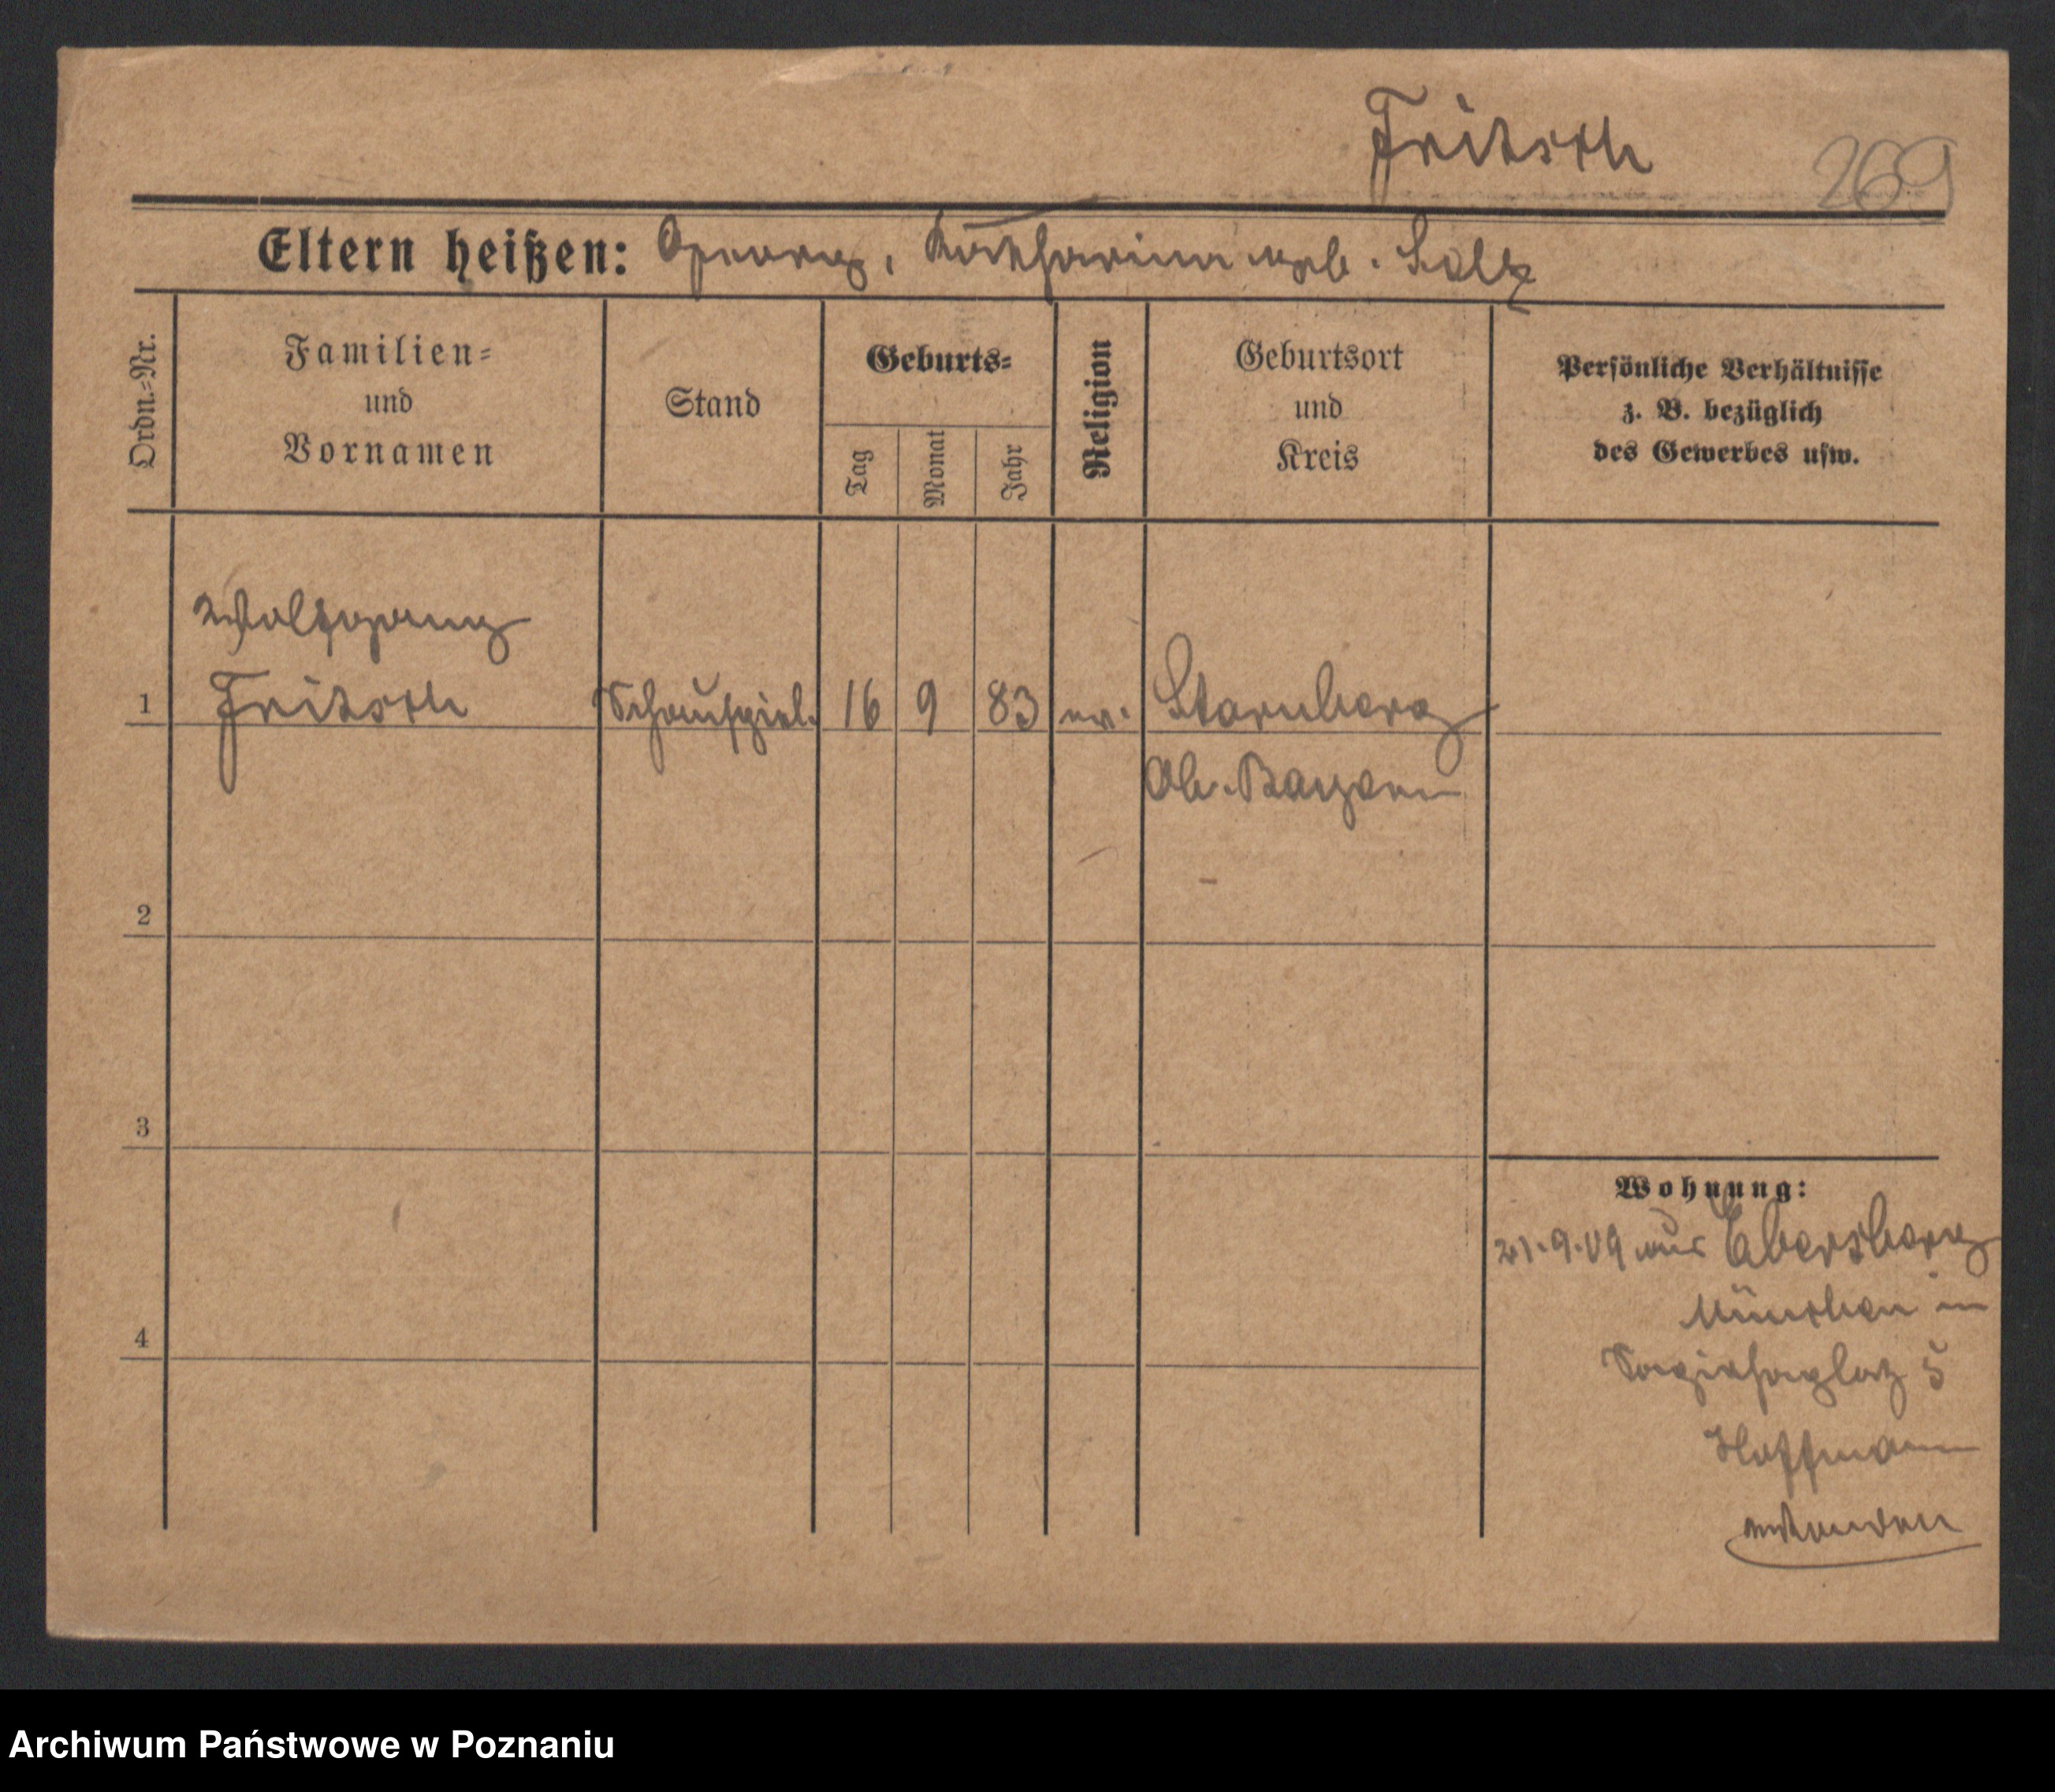 Fritsch 269
Eltern heißen: Georg, Katharina geb. Salz
Ordn.-Nr.
Familien-
und
Vornamen
Stand
Geburts-
Tag
Monat
Jahr
Religion
Geburtsort
und
Kreis
Persönliche Verhältnisse
z. B. bezüglich
des Gewerbes usw.
Wolfgang
1 Fritsch Schauspiel. 16 9 83 ev. Starnberg
Ob. Bayern
2
3
4
Wohnung:
21.9.09 aus Ebersberg
München in
Sapiehaplatz 5
Hoffmann
Archiwum Państwowe w Poznaniu